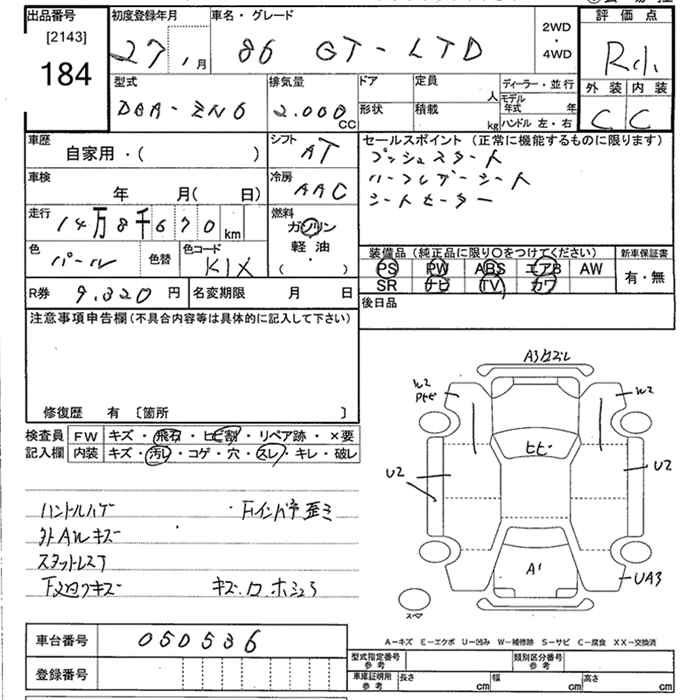 出品番号 初度登録年月 車名・グレード 2WD・4WD 評価点
[2143]
184 27 . 1月 86 GT-LTD R
外装 内装
C C
型式 排気量 ドア 定員 人 ディーラー・並行
DBA-ZN6 2.000 CC 形状 積載 kg モデル年式 年
ハンドル 左・右
車歴 シフト セールスポイント (正常に機能するものに限ります)
自家用・( ) AT プッシュスタート
車検 冷房 ハーフレザーシート
年 月( 日) AAC シートヒーター
走行 燃料
14万8千670km ガソリン
軽油・
( )
色 色替 色コード
パール K1X
装備品 (純正品に限り〇をつけてください) 新車保証書
PS PW ABS エアB AW 有・無
SR ナビ TV カワ
R券 9.320円 名変期限 月 日
後日品
注意事項申告欄(不具合内容等は具体的に記入して下さい)
修復歴 有 [箇所 ]
検査員 FW キズ・飛石・ヒビ割・リペア跡・×要
記入欄 内装 キズ・汚レ・コゲ・穴・スレ・キレ・破レ
ハンドルハゲ
外AWキズ
スタットレス
キズ.ロ.ホショウ
W2
W2
ヒビ
U2
U2
A1
UA3
スペア
A−キズ E−エクボ U−凹み W−補修跡 S−サビ C−腐食 XX−交換済
車台番号 050536
登録番号
型式指定番号 参考 類別区分番号 参考
車庫証明用 参考 長さ cm 幅 cm 高さ cm